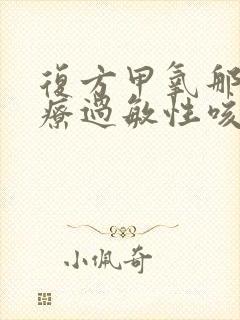 復方甲氧那
療過敏性咳
小佩奇